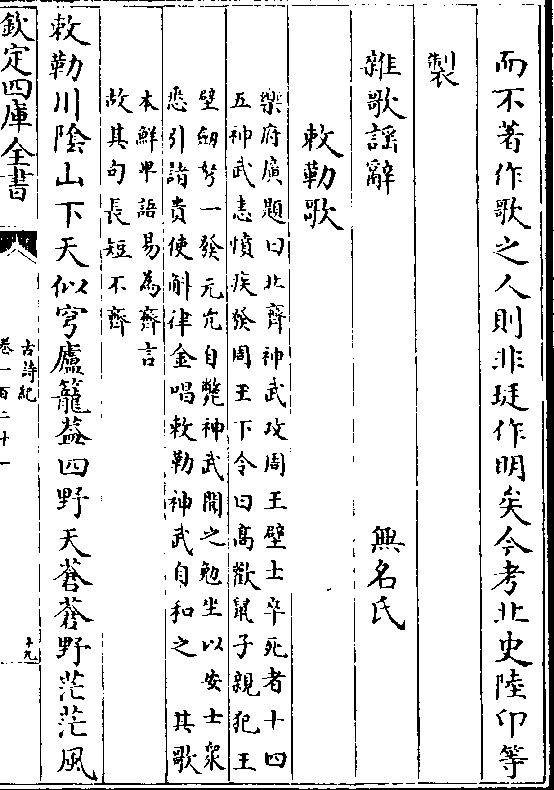 而不著作歌之人則非珽作明矣今考北史陸卬等
製
雜歌謡辭　無名氏
敕勒歌
樂府廣題曰北齊神武攻周王壁士卒死者十四
五神武恚憤疾發周王下令曰高歡鼠子親犯王
壁劔弩一發元凶自斃神武聞之勉坐以安士衆
悉引諸貴使斛律金唱敕勒神武自和之　其歌
本鮮卑語易為齊言
故其句長短不齊
敕勒川陰山下天似穹廬籠葢四野天蒼蒼野茫茫風
欽定四庫全書
古詩紀
卷一百二十一
十九